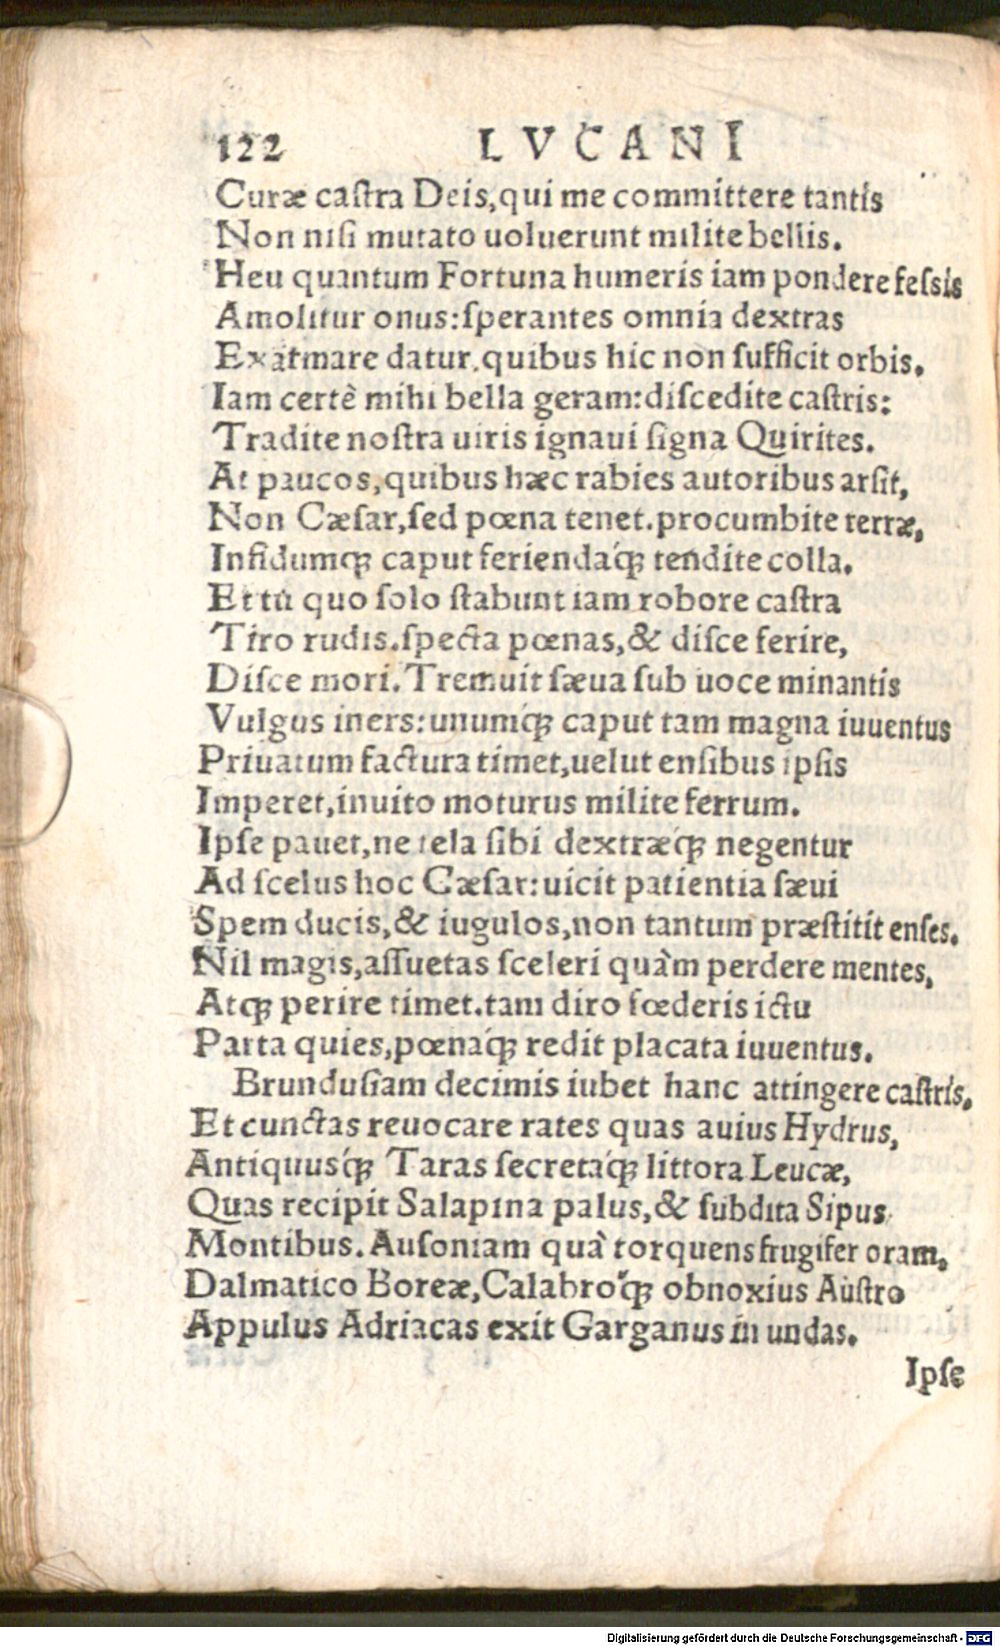 122 LVCANI
Curæ caſtra Deis,qui me committere tantis
Non niſi mutato uoluerunt milite bellis.
Heu quantum Fortuna humeris iam pondere feſsis
Amolitur onus:ſperantes omnia dextras
Exarmare datur,quibus hic non ſufficit orbis.
Iam certè mihi bella geram:diſcedite caſtris:
Tradite noſtra uiris ignaui ſigna Quirites.
At paucos,quibus hæc rabies autoribus arſit,
Non Cæſar,ſed pœna tenet.procumbite terræ,
Infidumq́; caput feriendaq́; tendite colla.
Et tu quo ſolo ſtabunt iam robore caſtra
Tiro rudis.ſpecta pœnas,& diſce ferire,
Diſce mori.Tremuit ſæua ſub uoce minantis
Vulgus iners:unumq́; caput tam magna iuuentus
Priuatum factura timet,uelut enſibus ipſis
Imperet,inuito moturus milite ferrum.
Ipſe pauet,ne tela ſibi dextræq́; negentur
Ad ſcelus hoc Cæſar:uicit patientia ſæui
Spem ducis,& iugulos,non tantum præſtitit enſes.
Nil magis,aſſuetas ſceleri quàm perdere mentes,
Atq; perire timet.tam diro fœderis ictu
Parta quies,pœnaq́; redit placata iuuentus.
Brunduſiam decimis iubet hanc attingere caſtris,
Et cunctas reuocare rates quas auius Hydrus,
Antiquusq́; Taras ſecretaq́; littora Leucæ,
Quas recipit Salapina palus,& ſubdita Sipus
Montibus.Auſoniam quà torquens frugifer oram,
Dalmatico Boreæ,Calabroq́; obnoxius Auſtro
Appulus Adriacas exit Garganus in undas.
Ipſe
Digitalisierung gefördert durch die Deutsche Forschungsgemeinschaft - DFG